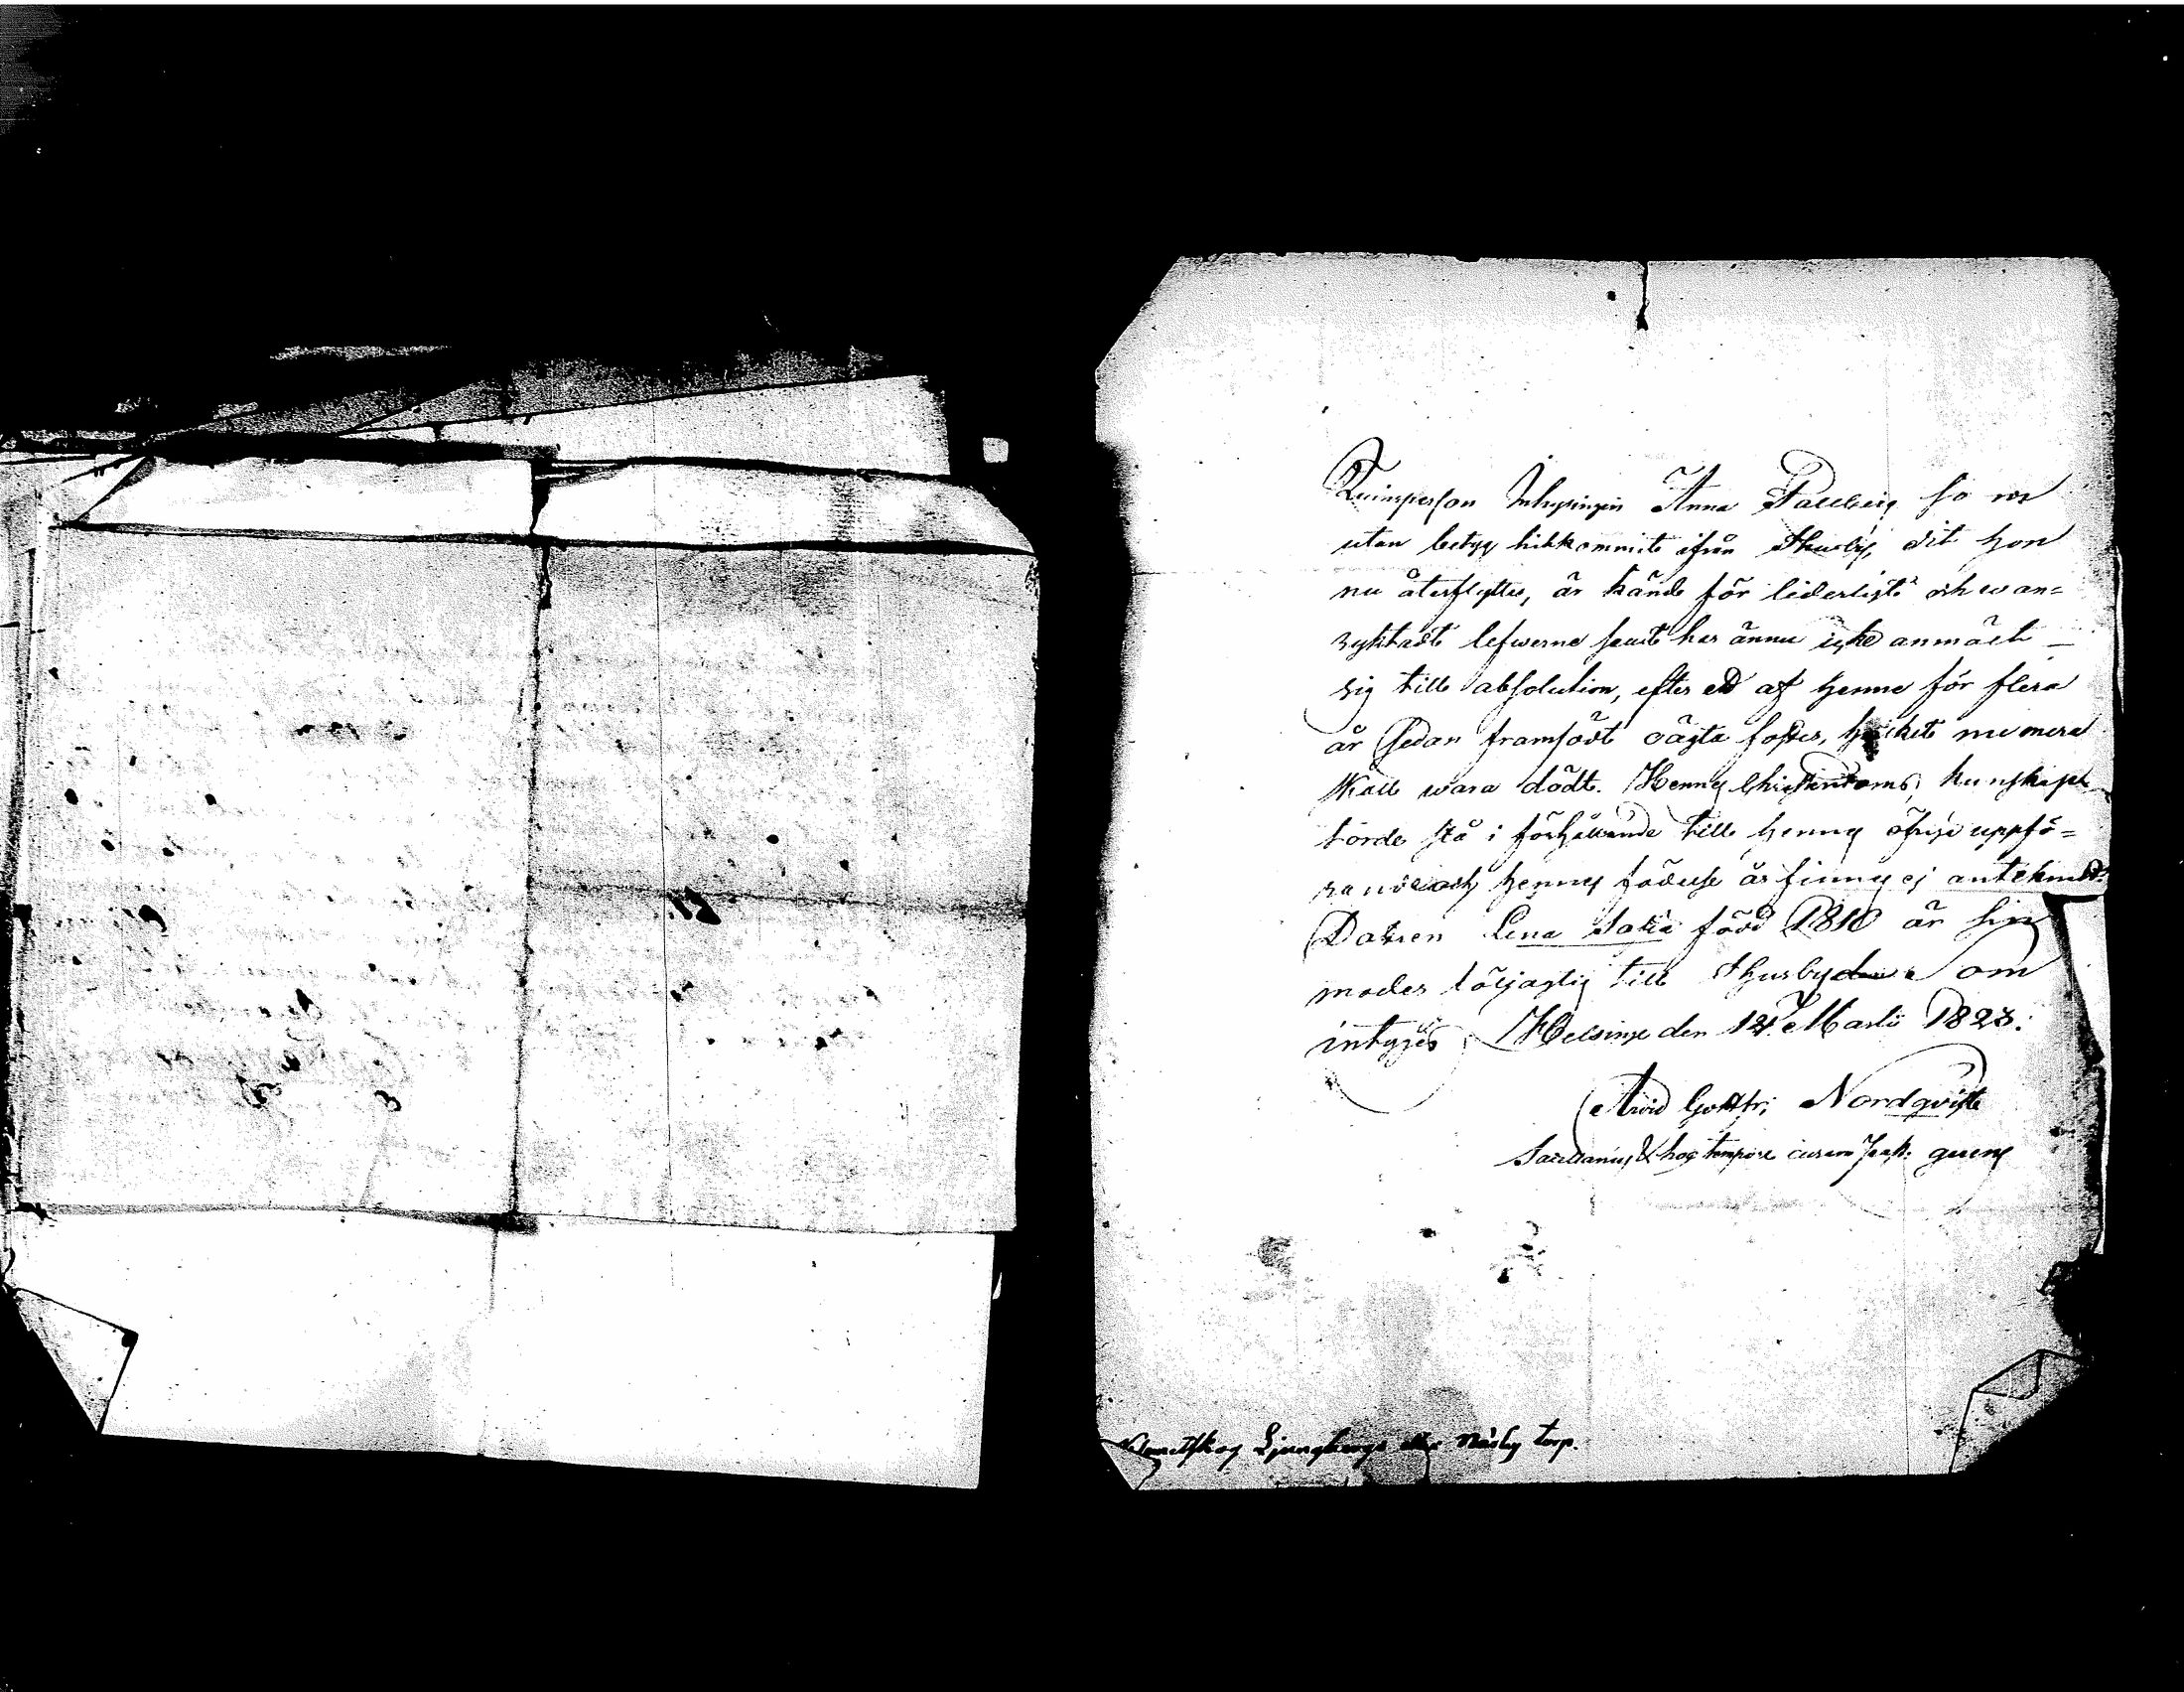 Qvinsperson Inhysingen Anna Pallberg so
utan betyg hitkommit ifrån Thusby, dit hon
nu återflytter, är känd för liderligit och wan=
ryktadt lefwerne samt har ännu icke anmält
sig till absolution, efter ett af henne för flera
år sedan framfödt oägta foster, hwilket numera
skall wara dödt. Hennes Christendoms kunskap
torde stå i förhållande till hennes öfriga uppfö=
rande och hennes födelse år finnes ej antecknadt.
Dottren Lena Sofia född 1810 är sin
moder följagtig till Thusby om
intygas Helsinge den 12 Martii 1823.
Arvid Gottfr: Nordqvist
Sacellanus & hoc tempore curam past: gerens
Klemetskog Ljungberga Näsby torp.